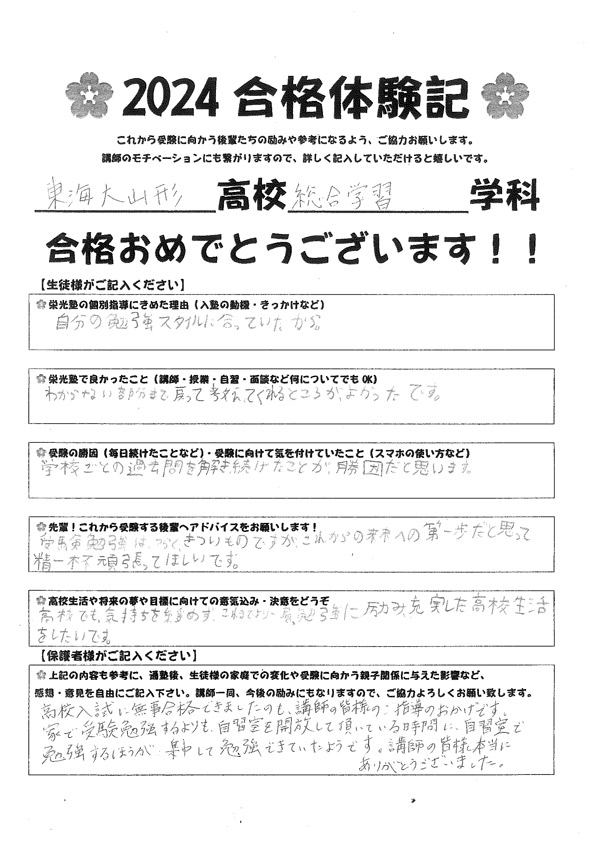 2024 合格体験記
これから受験に向かう後輩たちの励みや参考になるよう、ご協力お願いします。
講師のモチベーションにも繋がりますので、詳しく記入していただけると嬉しいです。
東海大山形 高校 総合学習 学科
合格おめでとうございます！！
【生徒様がご記入ください】
栄光塾の個別指導にきめた理由（入塾の動機・きっかけなど）
自分の勉強スタイルに合っていたから。
栄光塾で良かったこと（講師・授業・自習・面談など何についてでもOK）
わからない部分まで戻って考えてくれるところがよかったです。
受験の勝因（毎日続けたことなど）・受験に向けて気を付けていたこと（スマホの使い方など）
学校ごとの過去問を解き続けたことが、勝因だと思います。
先輩！これから受験する後輩へアドバイスをお願いします！
受験勉強は、つらく、きついものですが、これからの未来への第一歩だと思って
精一杯頑張ってほしいです。
高校生活や将来の夢や目標に向けての意気込み・決意をどうぞ
高校でも、気持ちを緩めず、これまでより一層勉強に励み、充実した高校生活
をしたいです。
【保護者様がご記入ください】
上記の内容も参考に、通塾後、生徒様の家庭での変化や受験に向かう親子関係に与えた影響など、
感想・意見を自由にご記入下さい。講師一同、今後の励みにもなりますので、ご協力よろしくお願い致します。
高校入試に無事合格できましたのも、講師の皆様のご指導のおかげです。
家で受験勉強するよりも、自習室を開放して頂いている時間に、自習室で
勉強するほうが、集中して勉強できていたようです。講師の皆様、本当に
ありがとうございました。